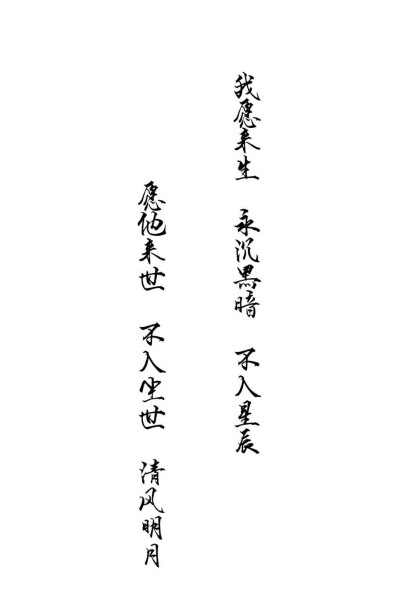 我愿来生 永沉黑暗 不入星辰
愿他来世 不入尘世 清风明月